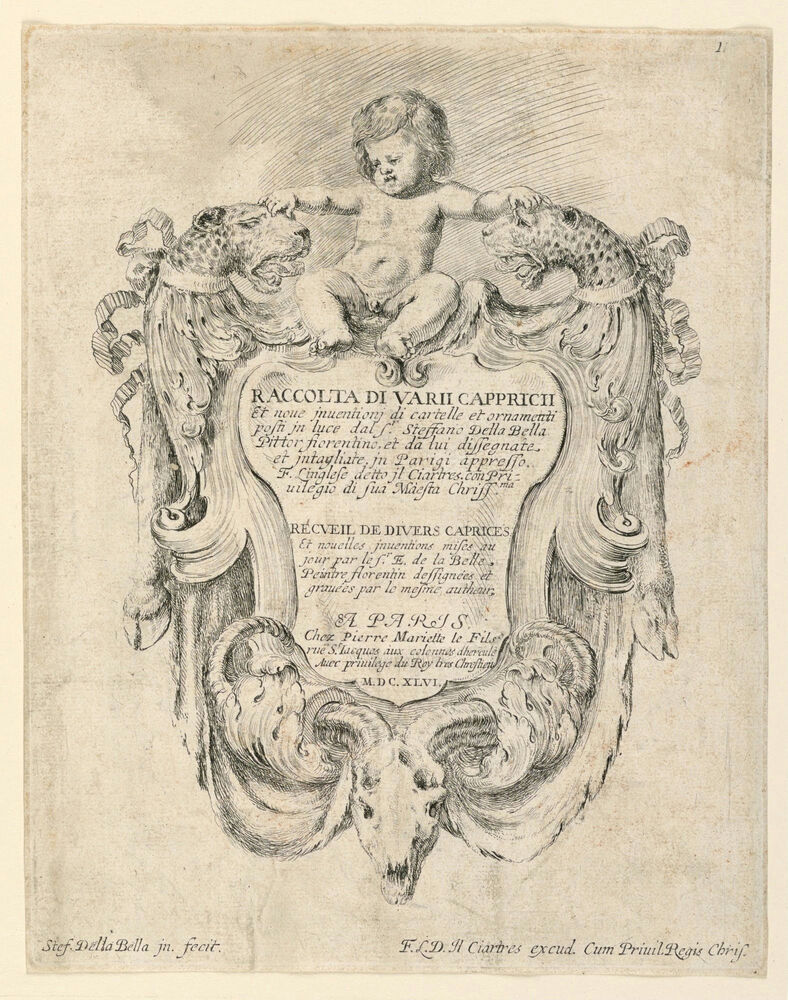 1
RACCOLTA DI VARII CAPPRICII
Et noue jnuentionj di cartelle et ornamenti
posti jn luce dal s.r Steffano Della Bella
Pittor fiorentino, et da lui dissegnate
et jntagliate, jn Parigi appresso.
F. L'inglese detto jl Ciartres. con Pri-
uilegio di sua Maesta Chriss.ma
RECVEIL DE DIVERS CAPRICES
Et nouelles jnuentions mises au
jour par le s.r E. de la Belle
Peintre florentin dessignées et
grauées par le mesme autheur,
A PARIS
Chez Pierre Mariette le Fils
rue S. Iacques aux colonnes dhercule
Auec priuilege du Roy tres Chrestien
M.DC.XLVI.
Stef. Della Bella jn. fecit.
F.L.D. Il Ciartres excud. Cum Priuil. Regis Chris.